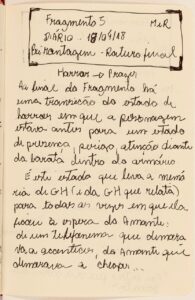 Fragmento 5 M.R
DIÁRIO - 18/04/18
Paisantagem - Ratura final
Horror → Prazer
Ao final do Fragmento há
uma transição do estado de
horror em que a personagem
estava antes para um estado
de presença, perigo, atenção diante
da barata dentro do armário
É este estado que leva a memó
ria de GH (da GH que relata)
para todas as vezes em que ela
ficou à espera do Amante:
de um telefonema que demora
va a acontecer, do Amante que
demorava a chegar...